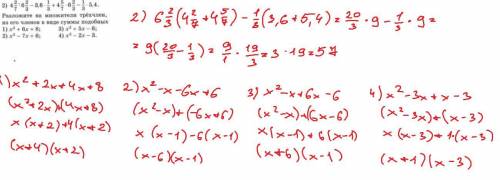 2) 4 2/7 · 6 2/3 − 3,6 · 1/3 + 4 5/7 · 6 2/3 − 1/3 · 5,4.
Разложите на множители трёхчлен,
из его членов в виде суммы подобных
1) x² + 6x + 8; 3) x² + 5x − 6;
2) x² − 7x + 6; 4) x² − 2x − 3.
2) 6 2/3 (4 2/7 + 4 5/7) − 1/3 (3,6 + 5,4) = 20/3 · 9 − 1/3 · 9 =
= 9 (20/3 − 1/3) = 9/1 · 19/3 = 3 · 19 = 57
1) x² + 2x + 4x + 8
(x² + 2x) + (4x + 8)
x (x + 2) + 4 (x + 2)
(x + 4)(x + 2)
2) x² − x − 6x + 6
(x² − x) + (−6x + 6)
x (x − 1) − 6 (x − 1)
(x − 6)(x − 1)
3) x² − x + 6x − 6
(x² − x) + (6x − 6)
x (x − 1) + 6 (x − 1)
(x + 6)(x − 1)
4) x² − 3x + x − 3
(x² − 3x) + (x − 3)
x (x − 3) + 1 · (x − 3)
(x + 1)(x − 3)